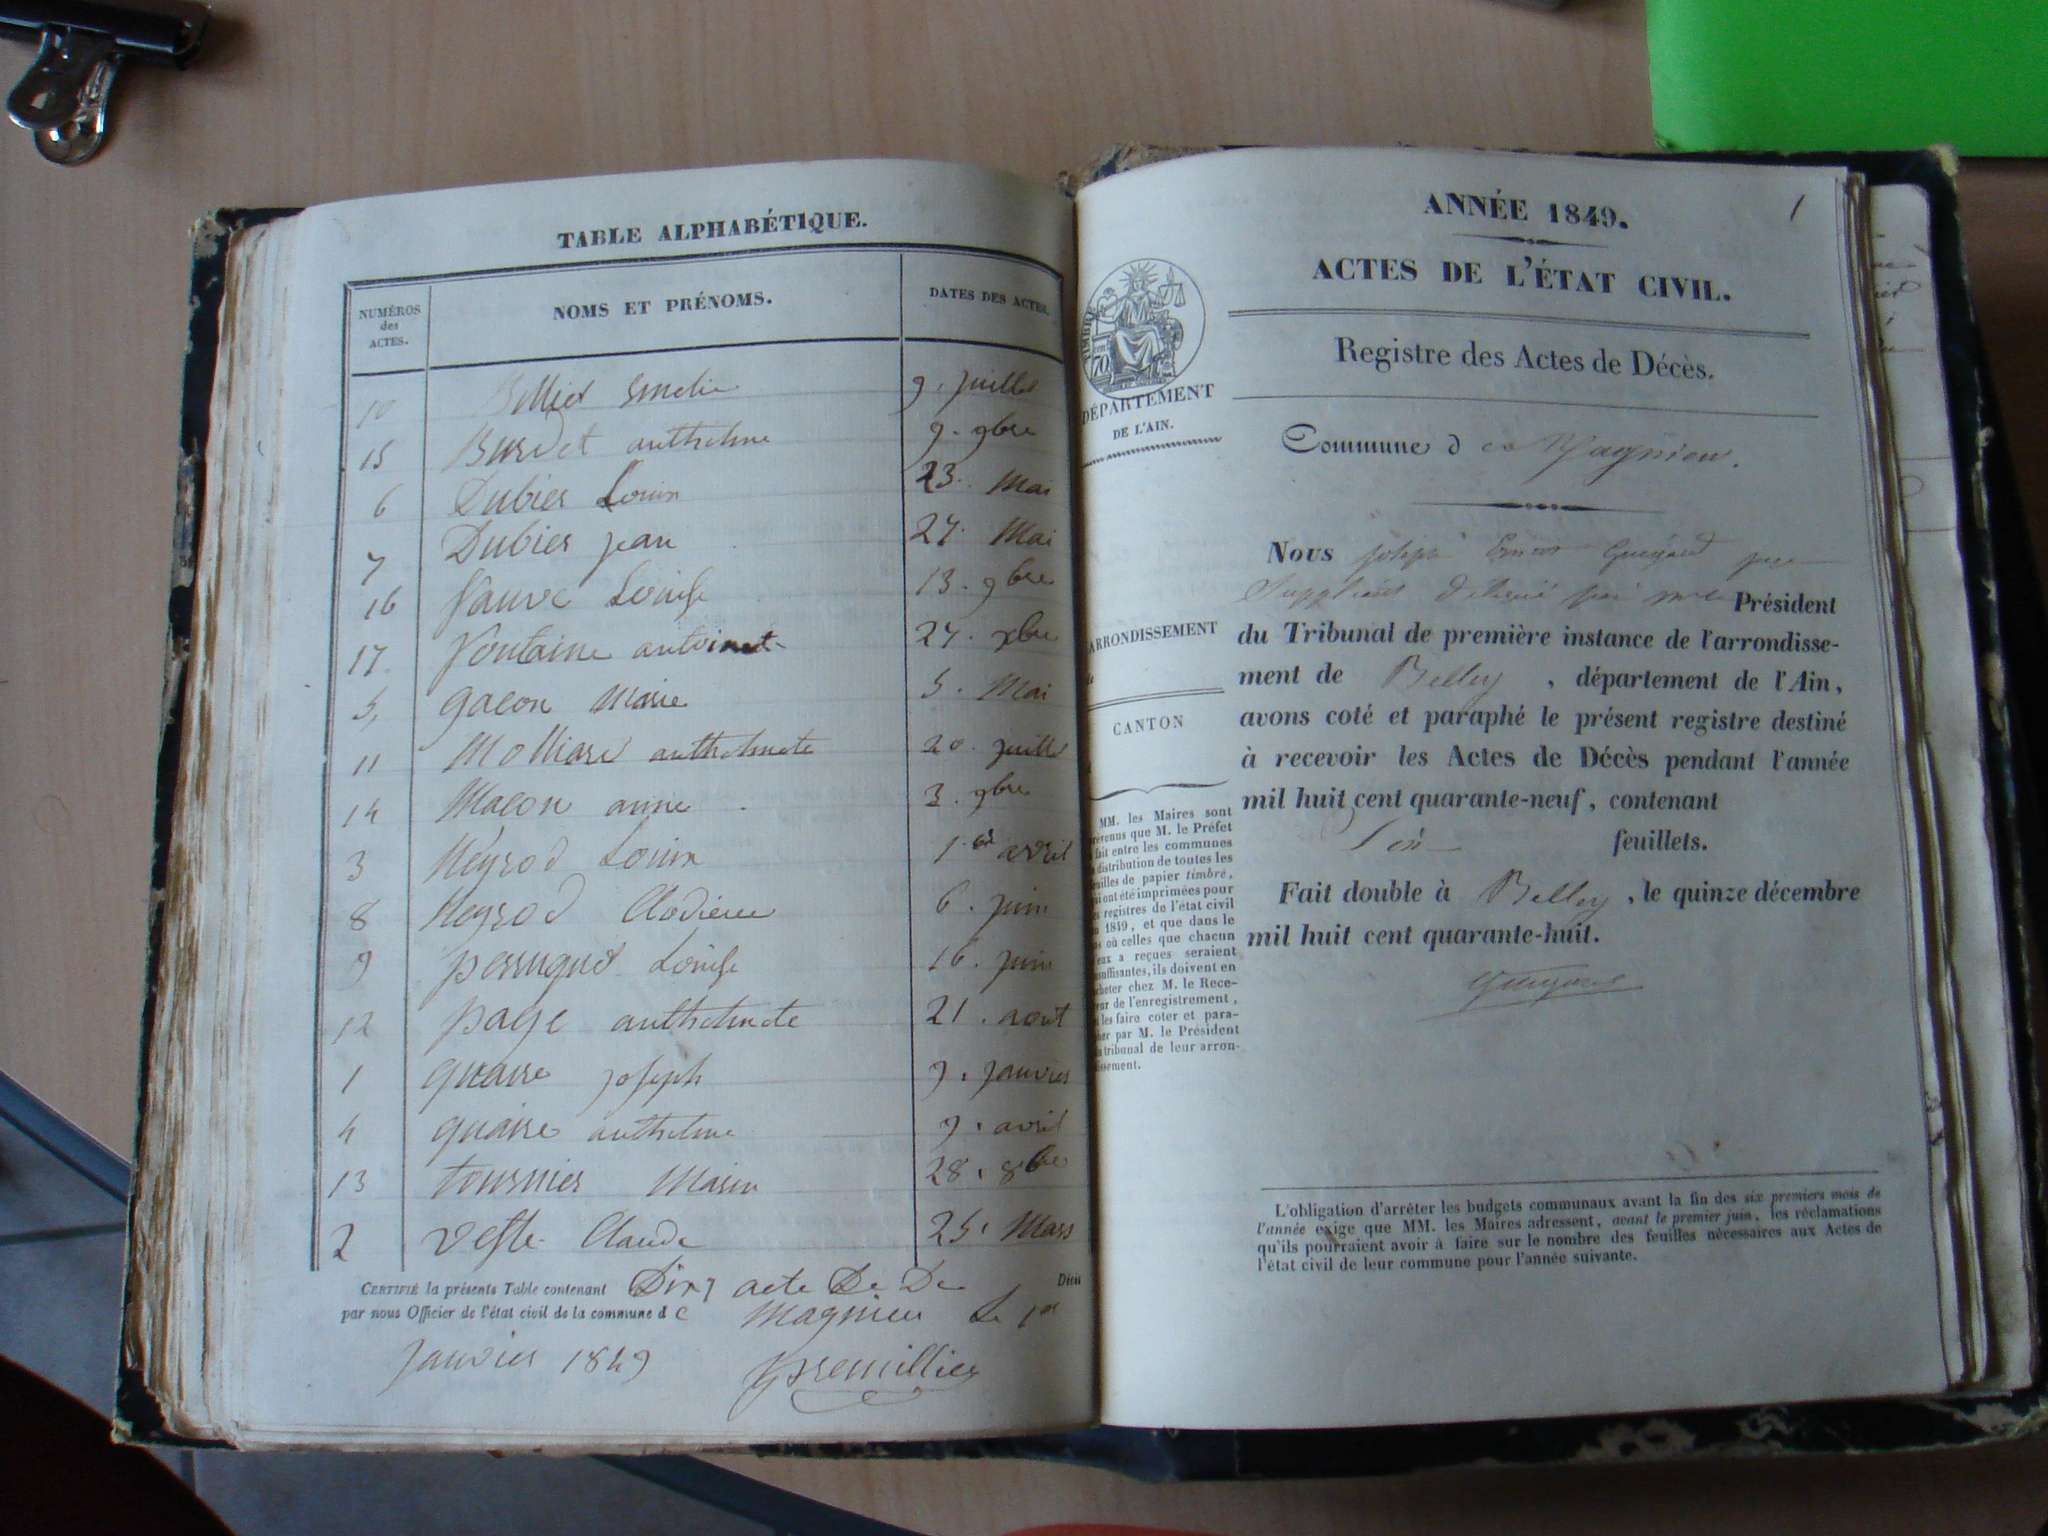 TABLE ALPHABÉTIQUE.
NUMÉROS des ACTES.
NOMS ET PRÉNOMS.
DATES DES ACTES.
10 Billiet Emelie 9. juillet
15 Burdet anthelme 9. 9bre
6 Dubier Louis 23. Mai
7 Dubier jean 27. Mai
16 favre Louise 13. 9bre
17 fontaine antoinet 27. xbre
5, gacon Marie 5. Mai
11 Molliard anthelmete 20. juillet
14 Macon anne 3. 9bre
3 Neyrod Louis 1er avril
8 Neyrod Clodiere 6. juin
9 Louise 16. juin
12 page anthelmete 21. aout
1 quaire joseph 9. janvier
4 quaire anthelme 9. avril
13 tournier Marie 28. 8bre
2 veste Claude 25. Mars
CERTIFIÉ la présente Table contenant Dix 7 acte De De
par nous Officier de l'état civil de la commune d e Magnieu Le 1er
Janvier 1849
premillieu
1
ANNÉE 1849.
ACTES DE L'ÉTAT CIVIL.
Registre des Actes de Décès.
TIMBRE
70
DÉPARTEMENT
DE L'AIN.
Commune d e Magnieu.
ARRONDISSEMENT
CANTON
Nous joseph Guigard juge
Suppléant délégué par mr le Président
du Tribunal de première instance de l'arrondisse-
ment de Belley, département de l'Ain,
avons coté et paraphé le présent registre destiné
à recevoir les Actes de Décès pendant l'année
mil huit cent quarante-neuf, contenant
feuillets.
Fait double à Belley, le quinze décembre
mil huit cent quarante-huit.
MM. les Maires sont
prévenus que M. le Préfet
fait entre les communes
distribution de toutes les
feuilles de papier timbré,
qui ont été imprimées pour
les registres de l'état civil
1849, et que dans le
cas où celles que chacun
d'eux a reçues seraient
insuffisantes, ils doivent en
acheter chez M. le Rece-
veur de l'enregistrement,
et les faire coter et para-
pher par M. le Président
du tribunal de leur arron-
dissement.
L'obligation d'arrêter les budgets communaux avant la fin des six premiers mois de
l'année exige que MM. les Maires adressent, avant le premier juin, les réclamations
qu'ils pourraient avoir à faire sur le nombre des feuilles nécessaires aux Actes de
l'état civil de leur commune pour l'année suivante.